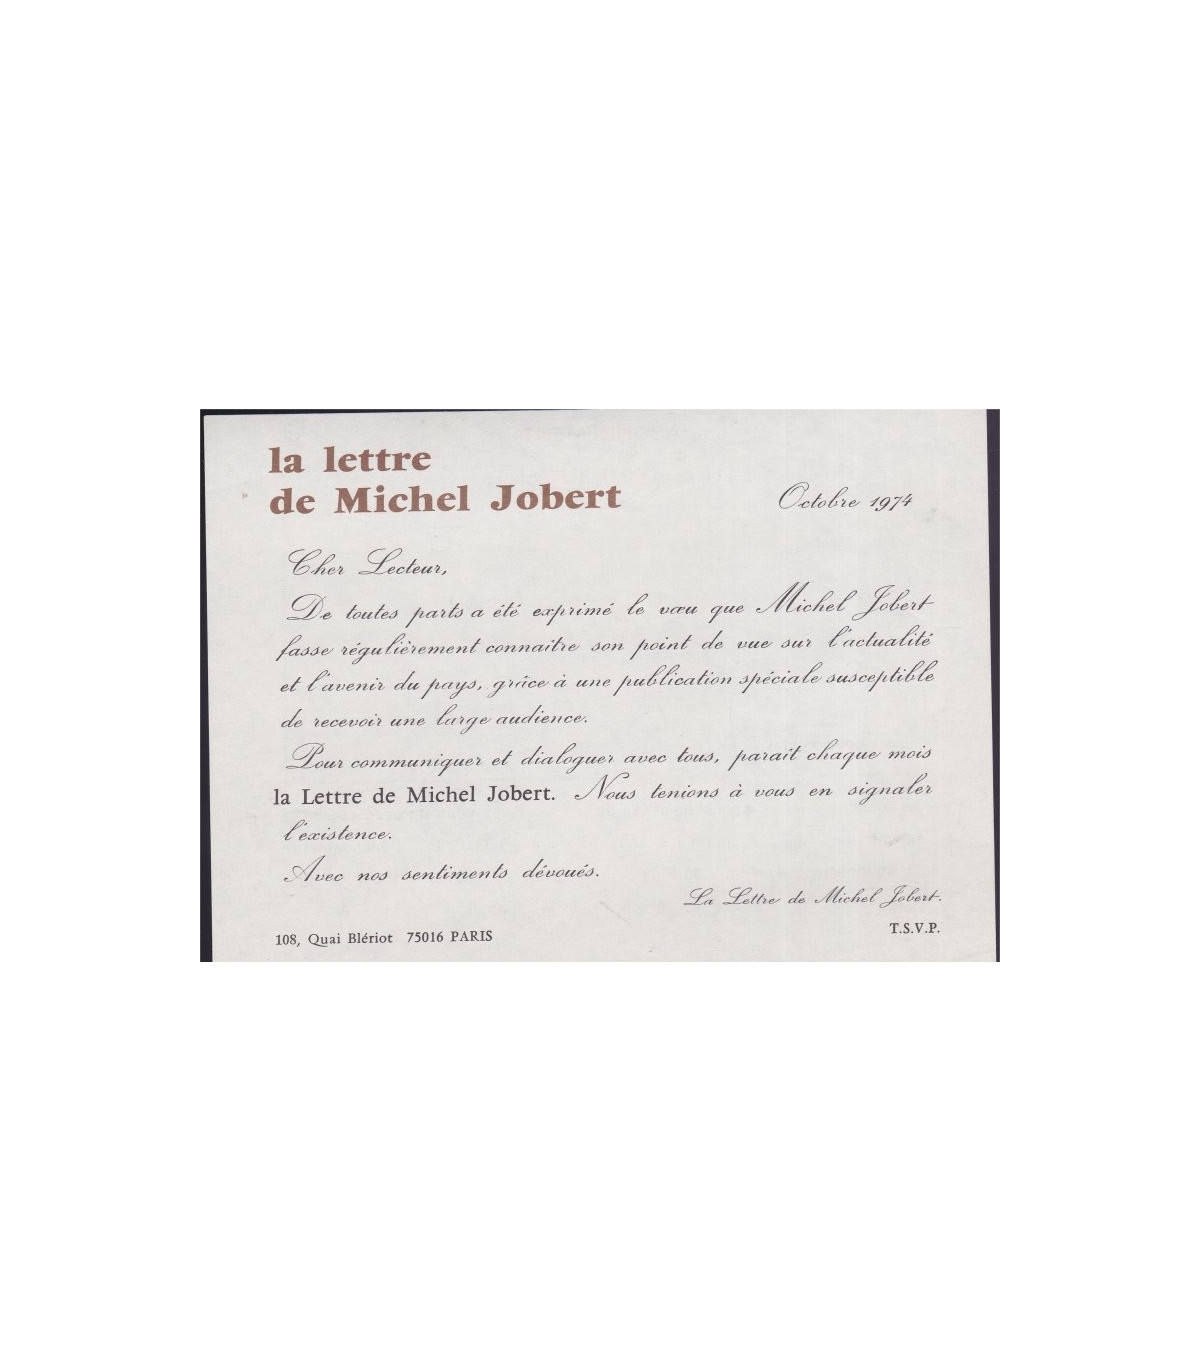 la lettre
de Michel Jobert
Octobre 1974
Cher Lecteur,
De toutes parts a été exprimé le vœu que Michel Jobert
fasse régulièrement connaitre son point de vue sur l'actualité
et l'avenir du pays, grâce à une publication spéciale susceptible
de recevoir une large audience.
Pour communiquer et dialoguer avec tous, parait chaque mois
la Lettre de Michel Jobert. Nous tenions à vous en signaler
l'existence.
Avec nos sentiments dévoués.
La Lettre de Michel Jobert.
108, Quai Blériot 75016 PARIS
T.S.V.P.